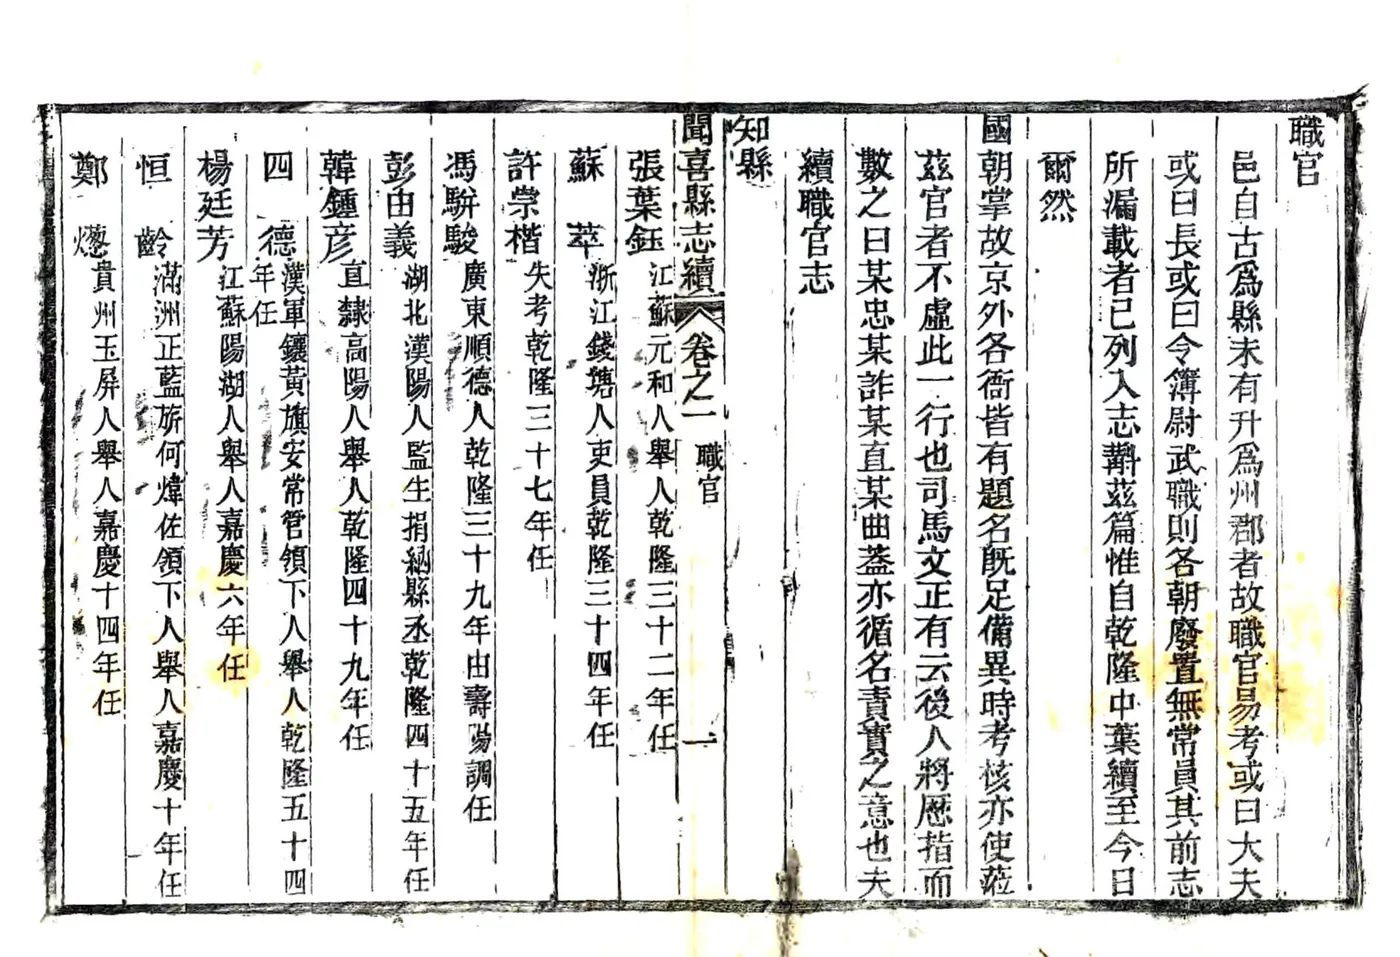 職官
邑自古爲縣未有升爲州郡者故職官易考或曰大夫
或曰長或曰令簿尉武職則各朝廢置無常員其前志
所漏載者已列入志斠茲篇惟自乾隆中葉續至今日
爾然
國朝掌故京外各衙皆有題名旣足備異時考核亦使蒞
茲官者不虛此一行也司馬文正有云後人將歷指而
數之曰某忠某詐某直某曲葢亦循名責實之意也夫
續職官志
知縣
聞喜縣志續 卷之一 職官 一
張葉鈺 江蘇元和人舉人乾隆三十二年任
蘇萃 浙江錢塘人吏員乾隆三十四年任
許崇楷 失考乾隆三十七年任
馮駢駿 廣東順德人乾隆三十九年由壽陽調任
彭由義 湖北漢陽人監生捐納縣丞乾隆四十五年任
韓鍾彦 直隸高陽人舉人乾隆四十九年任
四德 漢軍鑲黃旗安常管領下人舉人乾隆五十四
年任
楊廷芳 江蘇陽湖人舉人嘉慶六年任
恒齡 滿洲正藍旂何煒佐領下人舉人嘉慶十年任
鄭 貴州玉屏人舉人嘉慶十四年任